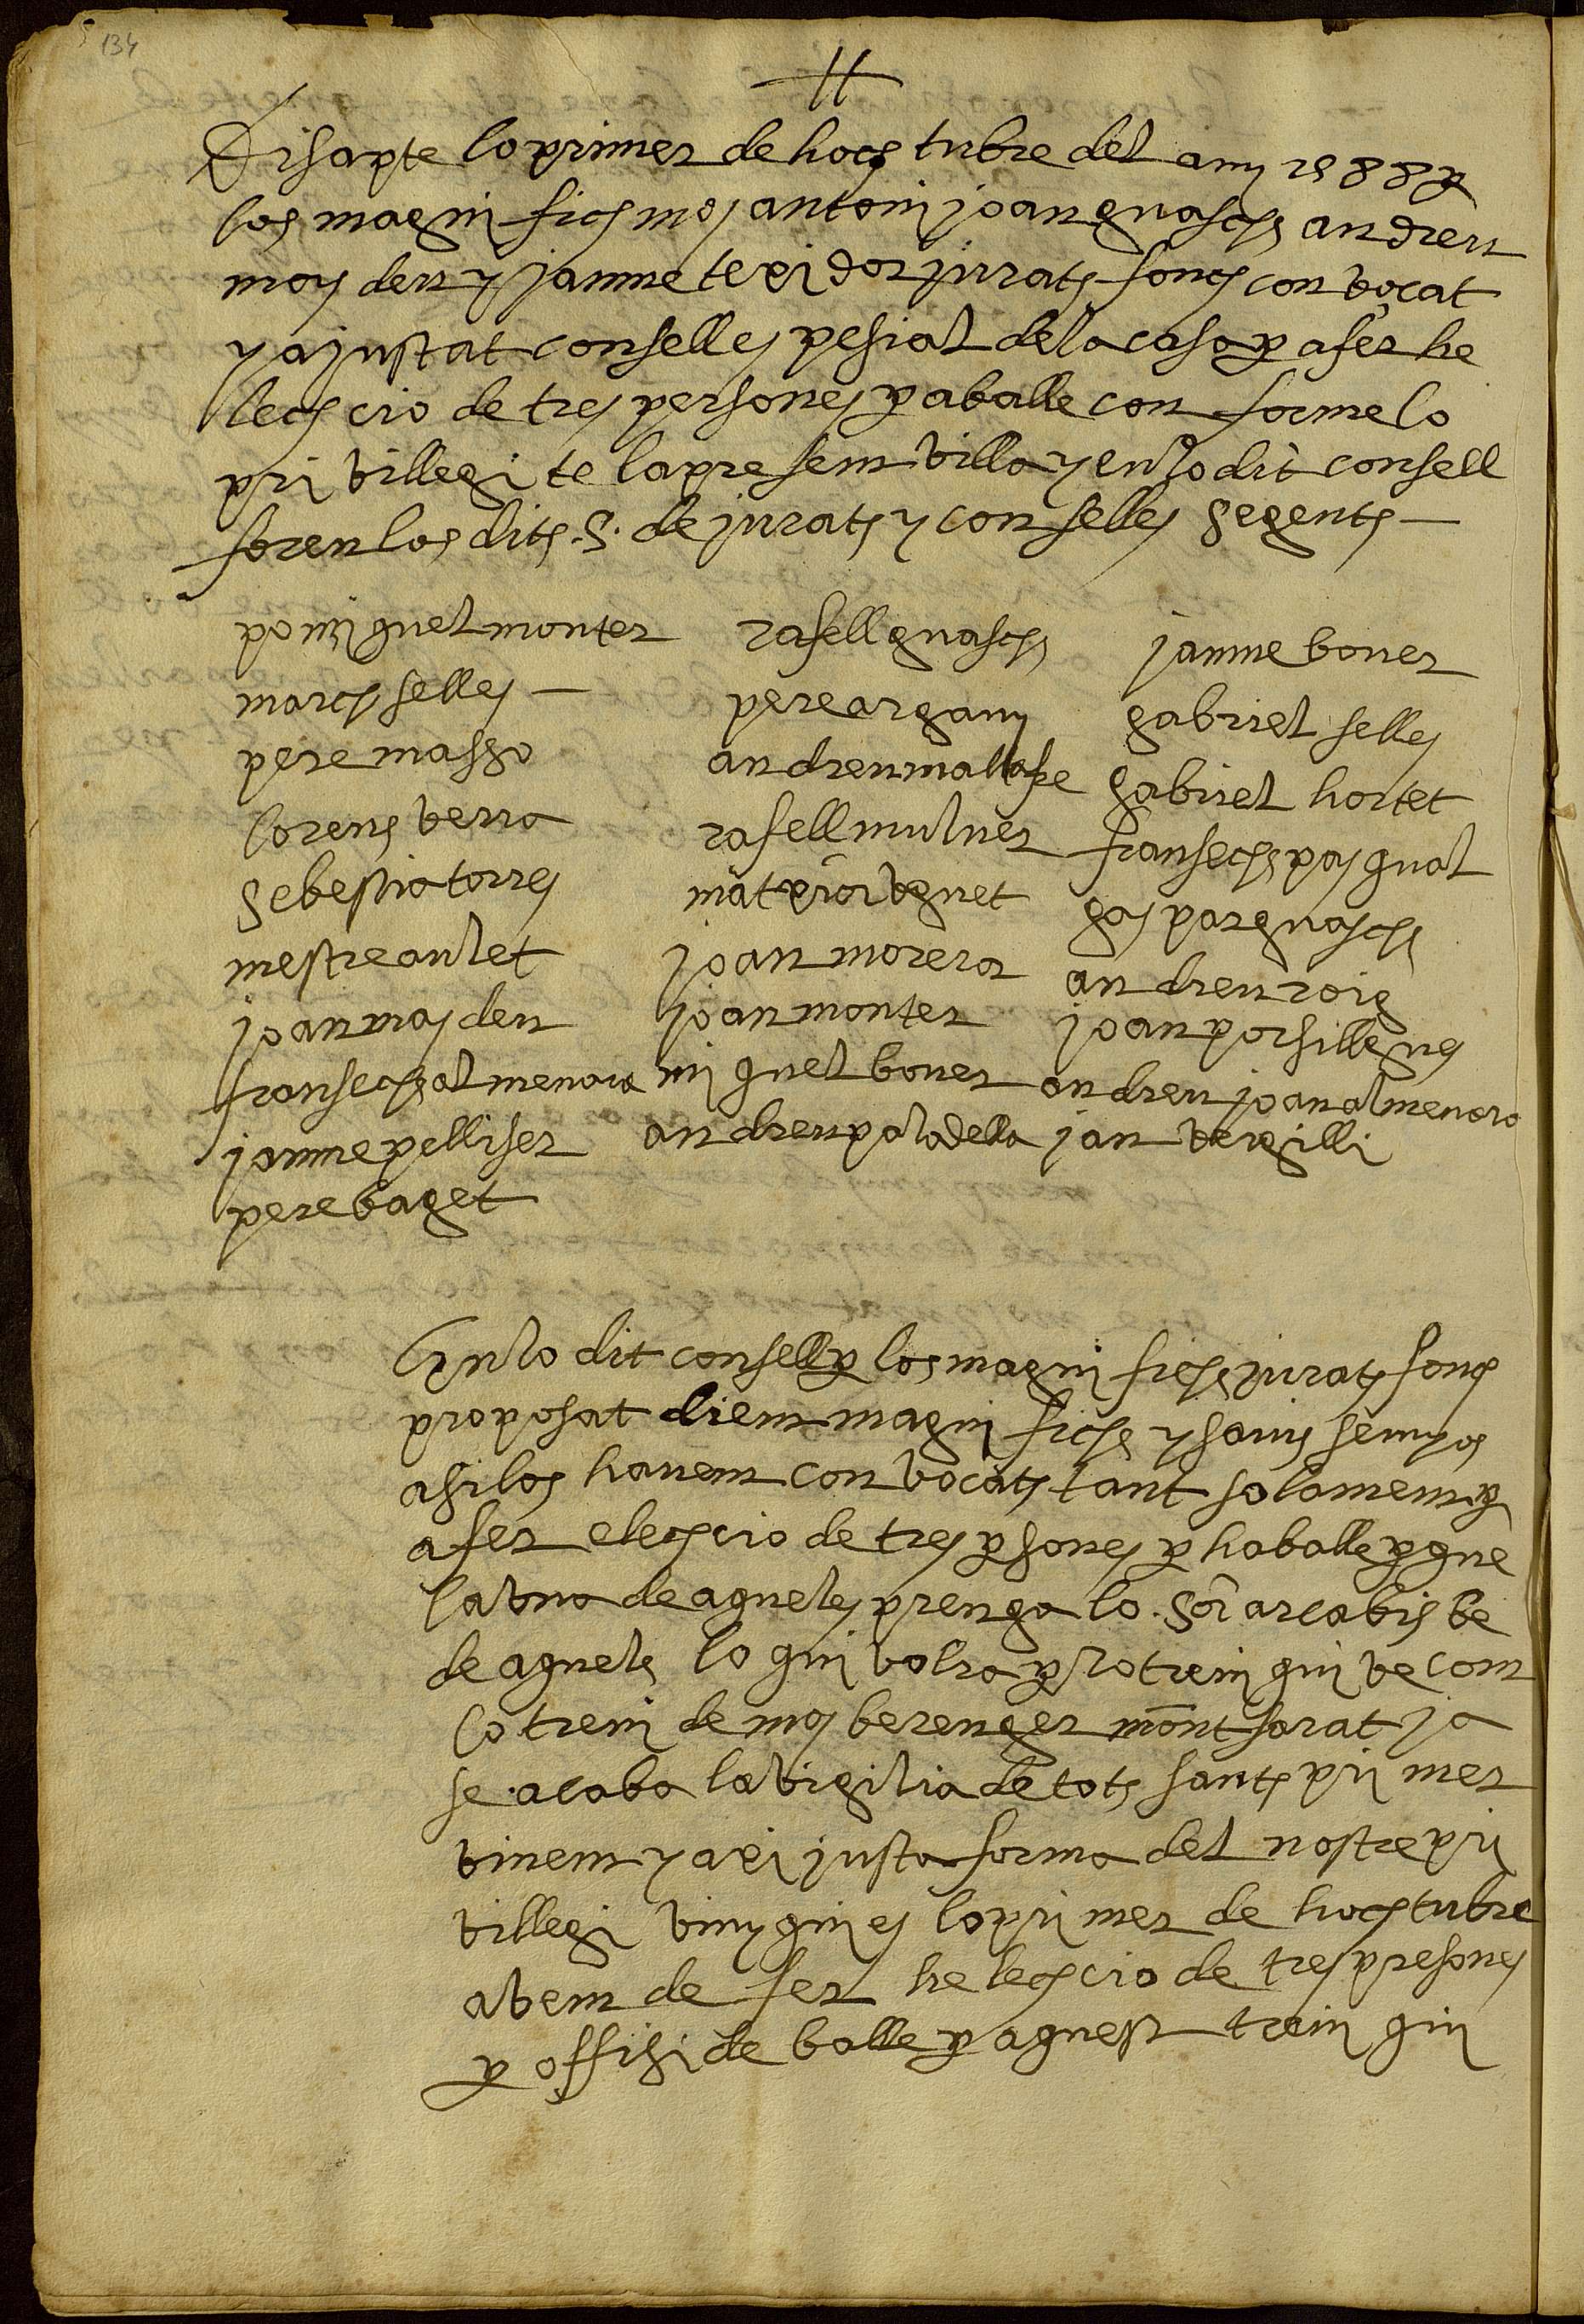 134
Disapte lo primer de hoctubre del any 1588 per
los magnifichs mos antoni joan guasch andreu
masdeu y jaume texidor jurats fonch convocat
y ajustat consell espesial de la casa per a fer he
lecscio de tres persones per a balle conforme lo
privillegi te la present villa y en lo dit consell
foren los dits .S. de jurats y consellés segents —
po miquel monter
march selles —
pere masgo
lorens verra
sebestia torres
mestre aulet
joan masdeu
fransech almenara
jaume pelliser
pere baget
rafell guasch
pere argany
andreu mallafre
rafell mulner
joan morera
joan monter
miquel bover
andreu paladella
jaume bover
gabriel selles
gabriel hortet
fransech pasqual
gaspar guasch
andreu roig
joan porsillegues
andreu joan almenara
jan vergilli
En lo dit consell per los magnifichs jurats fonch
proposat dient magnifichs y savis senyos
asi los havem convocats tant solament per
a fer elecscio de tres persones per ha balle per que
la una de aqueles prenga lo .Sor. arcabisbe
de aquels lo qui volra per lo treni qui ve com
lo treni de mos berenger montsarat ja
se acaba la vigilia de tots sants primer
vinent y axi justa forma del nostre pri
villegi vuy qui es lo primer de hoctubre
avem de fer helecscio de tres presones
per offisi de balle per aquest treni qui